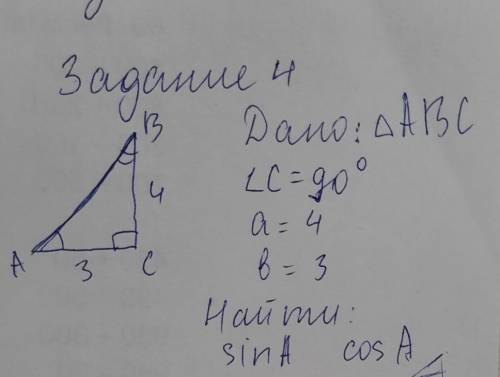 Задание 4
B
4
A
3
C
Дано: △ABC
∠C = 90°
a = 4
b = 3
Найти:
sinA cosA